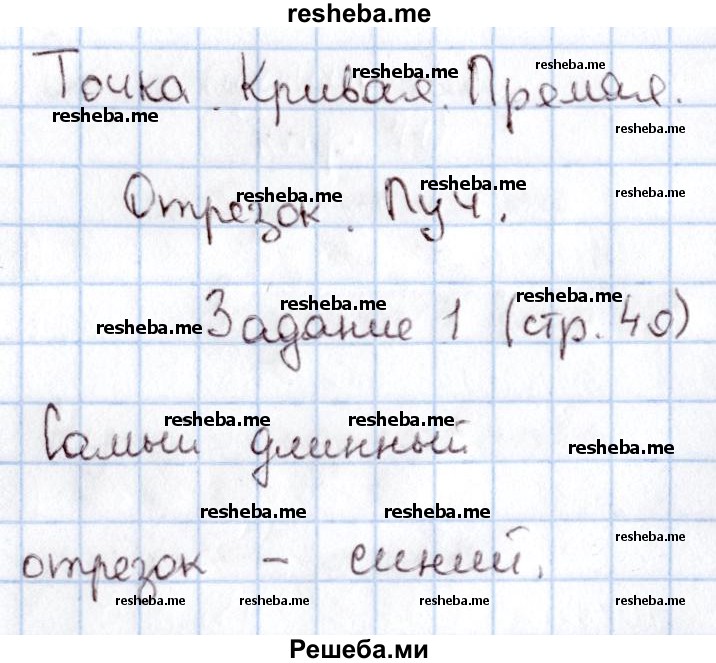 resheba.me
Точка. Кривая. Прямая.
resheba.me resheba.me
resheba.me resheba.me
Отрезок. Луч.
resheba.me resheba.me resheba.me
Задание 1 (стр. 40)
resheba.me resheba.me resheba.me
Самый длинный
resheba.me resheba.me resheba.me
отрезок - синий.
resheba.me resheba.me resheba.me
resheba.me resheba.me resheba.me resheba.me
Решеба.ми